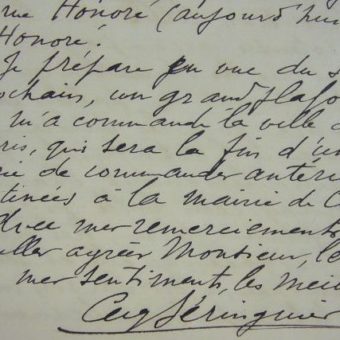 rue Honoré (aujourd'hui
Honoré.
Je prépare en vue du S
ochain, un grand plafo
m'a commandé la ville d
ris, qui sera la fin d'un
rie de commandes antéri
tinées à la mairie de C
Avec mes remerciements
uillez agréer Monsieur, le
mes sentiments les meil
Séringuier